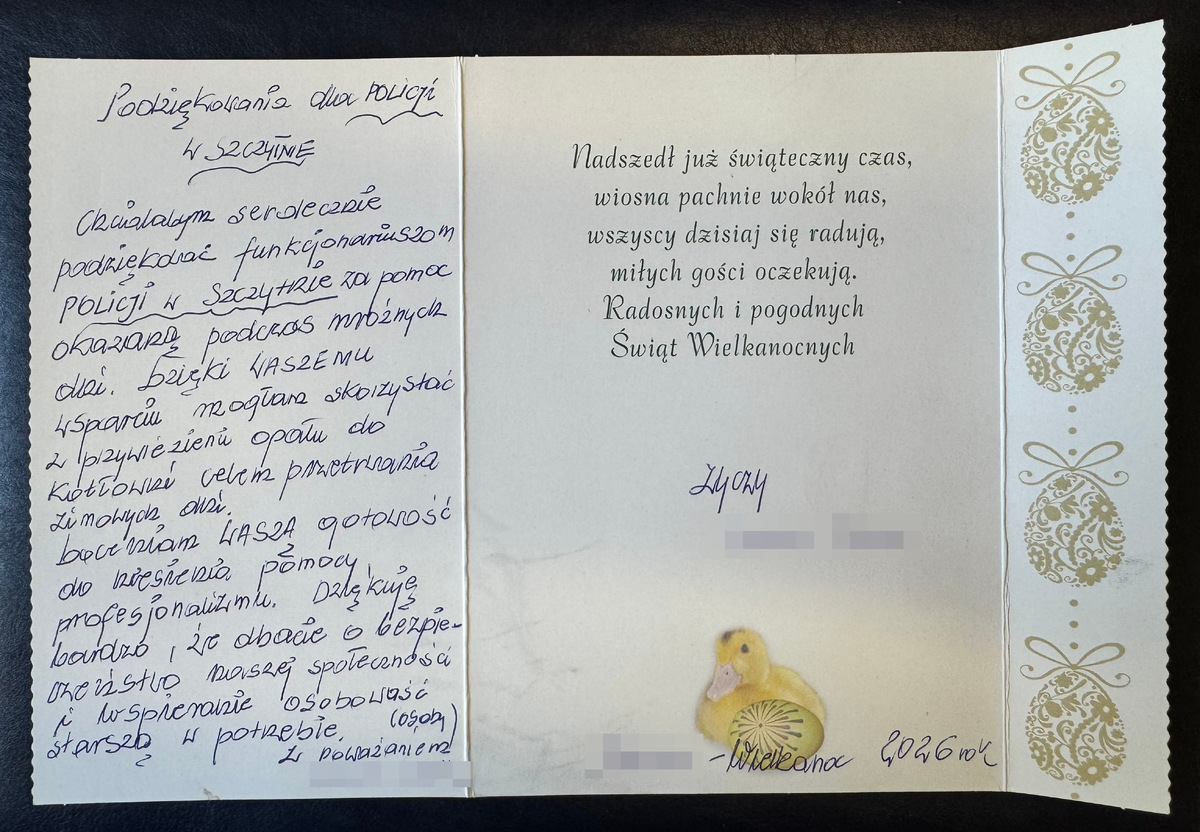 Podziękowania dla POLICJI
W SZCZYTNIE
Chciałabym serdecznie
podziękować funkcjonariuszom
POLICJI w Szczytnie za pomoc
okazaną podczas mroźnych
dni. Dzięki WASZEMU
wsparciu mogłam skorzystać
z przywiezieniu opału do
kotłowni celem przetrwania
zimowych dni.
Doceniam WASZA gotowość
do niesienia pomocy
profesjonalizmu. Dziękuję
bardzo, że dbacie o bezpie-
czeństwo naszej społeczności
i wspieranie osobowość
starszą w potrzebie. (osobą)
Z poważaniem
Nadszedł już świąteczny czas,
wiosna pachnie wokół nas,
wszyscy dzisiaj się radują,
miłych gości oczekują.
Radosnych i pogodnych
Świąt Wielkanocnych
życzy
-Wielkanoc 2026 rok